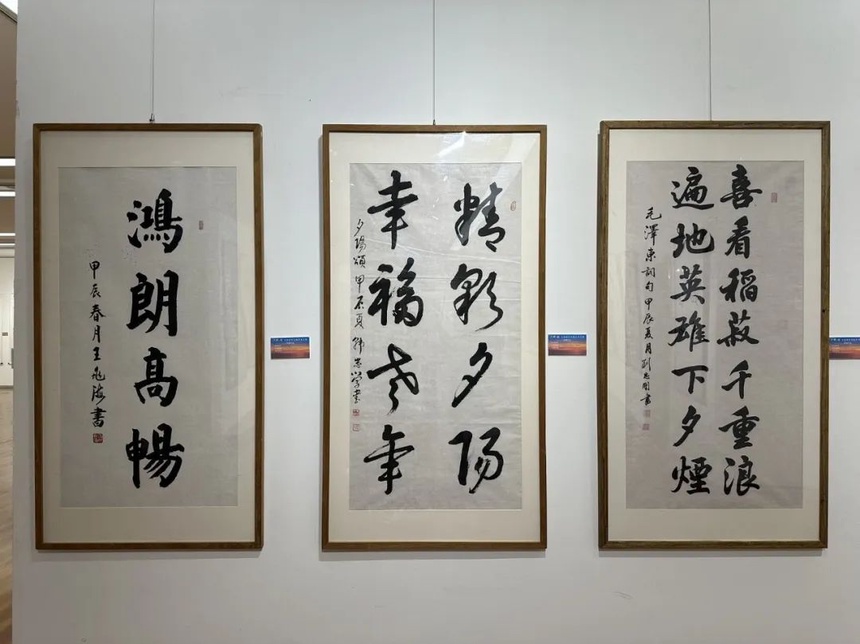 鴻朗高暢
甲辰春月王海書
精彩夕陽
幸福老年
夕陽頌甲辰夏學書
喜看稻菽千重浪
遍地英雄下夕煙
毛澤東詞句甲辰夏月劉書